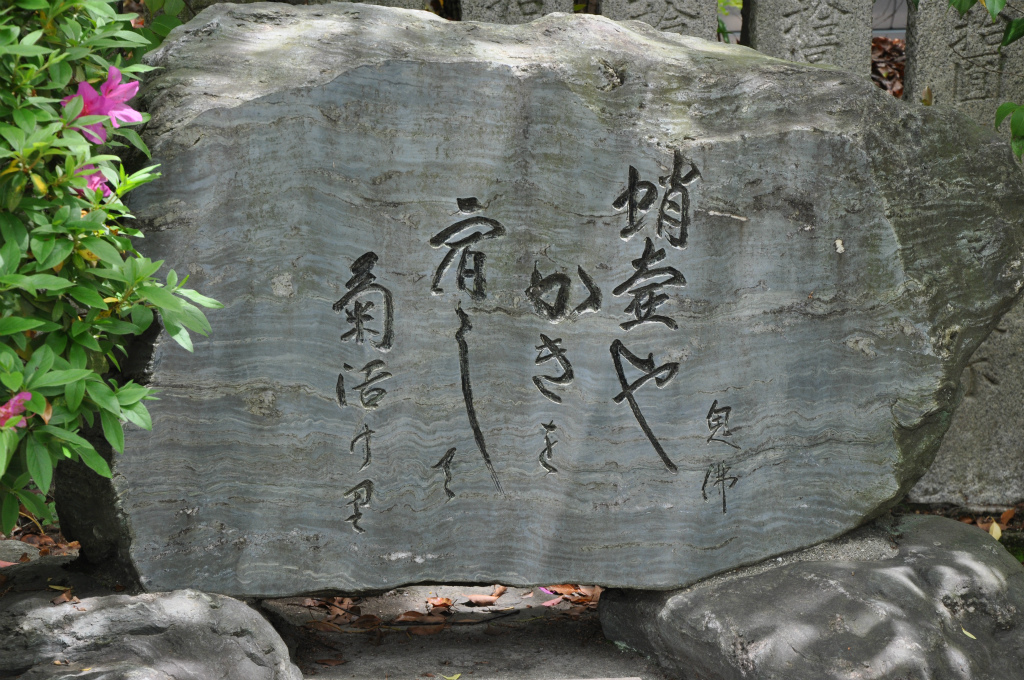 鬼佛
蛸壺や
かきを
宿して
菊活け里